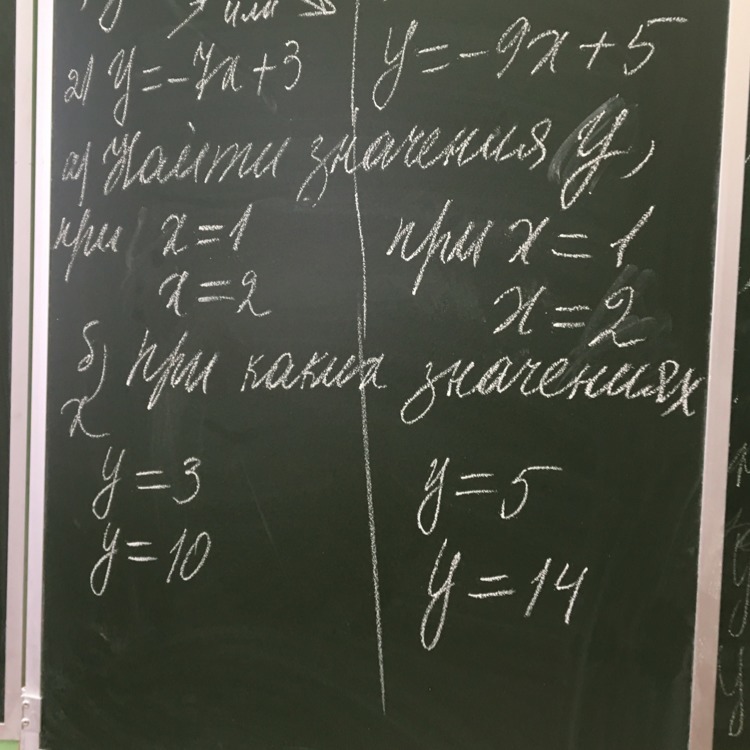 у или
2) y=-7x+3 y=-9x+5
а) Найти значения y,
при x=1 при x=1
x=2 x=2
б) при каких значениях
x
y=3 y=5
y=10 y=14